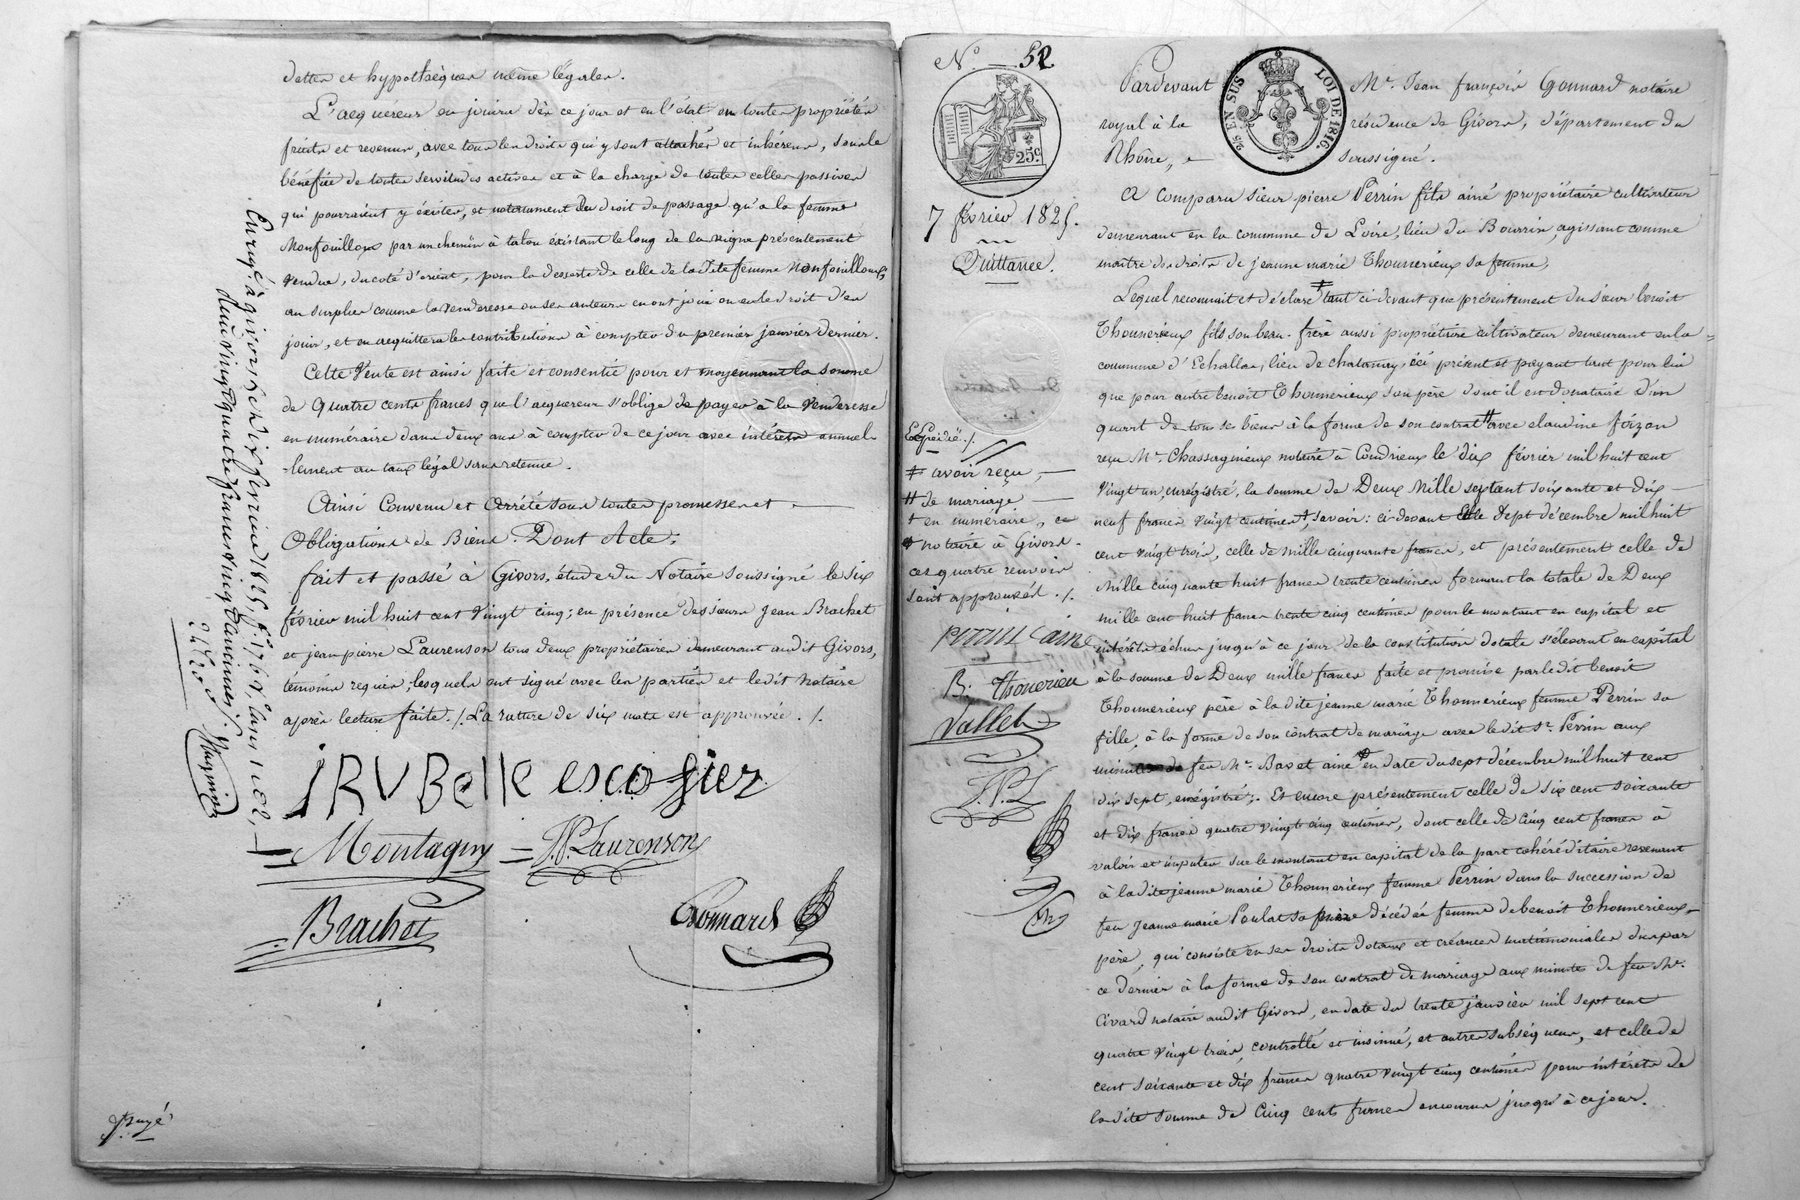 dettes et hypothèques même légales.
L'acquéreur en jouira dès ce jour et en l'état en toutes propriétés
fruits et revenus, avec tous les droits qui y sont attachés et inhérens, sous le
bénéfice de toutes servitudes actives et à la charge de toutes celles passives
qui pourraient y éxister, et notamment du droit de passage qu'a la femme
Monfouilloux par un chemin à talon éxistant le long de la vigne présentement
vendue, du coté d'orient, pour la desserte de celle de la dite femme Monfouilloux;
au surplus comme la venderesse ou ses auteurs en ont joui ou eu le droit d'en
jouir, et en acquittera les contributions à compter du premier janvier dernier.
Cette Vente est ainsi faite et consentie pour et moyennant la somme
de quatre cents francs que l'acquereur s'oblige de payer à la Venderesse
en numéraire dans deux ans à compter de ce jour avec intérêts annuel-
-lement au taux légal sans retenue.
Ainsi Convenu et Arrêté sous toutes promesses et
Obligations de Biens. Dont Acte;
fait et passé à Givors, étude du Notaire soussigné le six
février mil huit cent vingt cinq; en présence des sieurs Jean Brachet
et jean pierre Laurenson tous deux propriétaires demeurant audit Givors,
témoins requis, lesquels ont signé avec les parties et ledit notaire
après lecture faite. /. La rature de six mots est approuvée. /.
IRVBelle escofier
Montagny J.P. Laurenson
Brachet
Gonnard
Enregé à givors le dix fevrier 1825, f° 176 v° cases 1 et 2,
deux vingt quatre francs vingt centimes /.
24f 20c
N° 52
25 EN SUS
LOI DE 1816.
25c
7 février 1825.
Quittance.
Expédié /.
# avoir reçu,
# de mariage
+ en numéraire, ce
notaire à Givors
ces quatre renvois
sont approuvés. /.
perrin ainé
B. Thonnerieux
Vallet
J.P.L
Pardevant Me. Jean françois Gonnard notaire
royal à la résidence de Givors, département du
Rhône, soussigné.
A comparu sieur pierre Perrin fils ainé propriétaire cultivateur
demeurant en la commune de Loire, lieu du Bourrin, agissant comme
maitre des droits de jeanne marie Thonnerieux sa femme,
Lequel reconnait et déclare # tant ci-devant que présentement du sieur benoit
Thonnerieux fils son beau-frère aussi propriétaire cultivateur demeurant en la
commune d'Echallas, lieu de chatanay, ici présent et payant tant pour lui
que pour autre benoit Thonnerieux son père dont il est donataire d'un
quart de tous ses biens à la forme de son contrat # avec claudine foizon
reçu Me. Chassagnieux notaire à Condrieux le dix février mil huit cent
vingt un, enrégistré, la somme de Deux mille septcent soixante et dix
neuf francs vingt centimes +, savoir: ci-devant le Sept décembre mil huit
cent vingt trois, celle de mille cinquante francs, et présentement celle de
mille cinquante huit francs trente centimes formant la totale de Deux
mille cent huit francs trente cinq centimes pour le montant en capital et
intérêts échus jusqu'à ce jour de la constitution dotale s'élevant en capital
à la somme de Deux mille francs faite et promise par ledit benoit
Thonnerieux père à la dite jeanne marie Thonnerieux femme Perrin sa
fille, à la forme de son contrat de mariage avec ledit Sr. Perrin aux
minutes de feu Me. Bavet ainé en date du sept décembre mil huit cent
dix sept, enrégistré;. Et encore présentement celle de six cent soixante
et dix francs quatre vingt cinq centimes, dont celle de Cinq cent francs à
valoir et imputer sur le montant en capital de la part cohéréditaire revenant
à ladite jeanne marie Thonnerieux femme Perrin dans la succession de
feu jeanne marie Poulat sa mère décédée femme de benoit Thonnerieux
père, qui consiste en ses droits dotaux et créances matrimoniales dus par
ce dernier à la forme de son contrat de marriage aux minutes de feu Me.
Civard notaire audit Givors, en date du trente janvier mil sept cent
quatre vingt trois, controllé et insinué, et autres subséquens, et celle de
cent soixante et dix francs quatre vingt cinq centimes pour intérêts de
la dite somme de Cinq cents francs encourus jusqu'à ce jour.